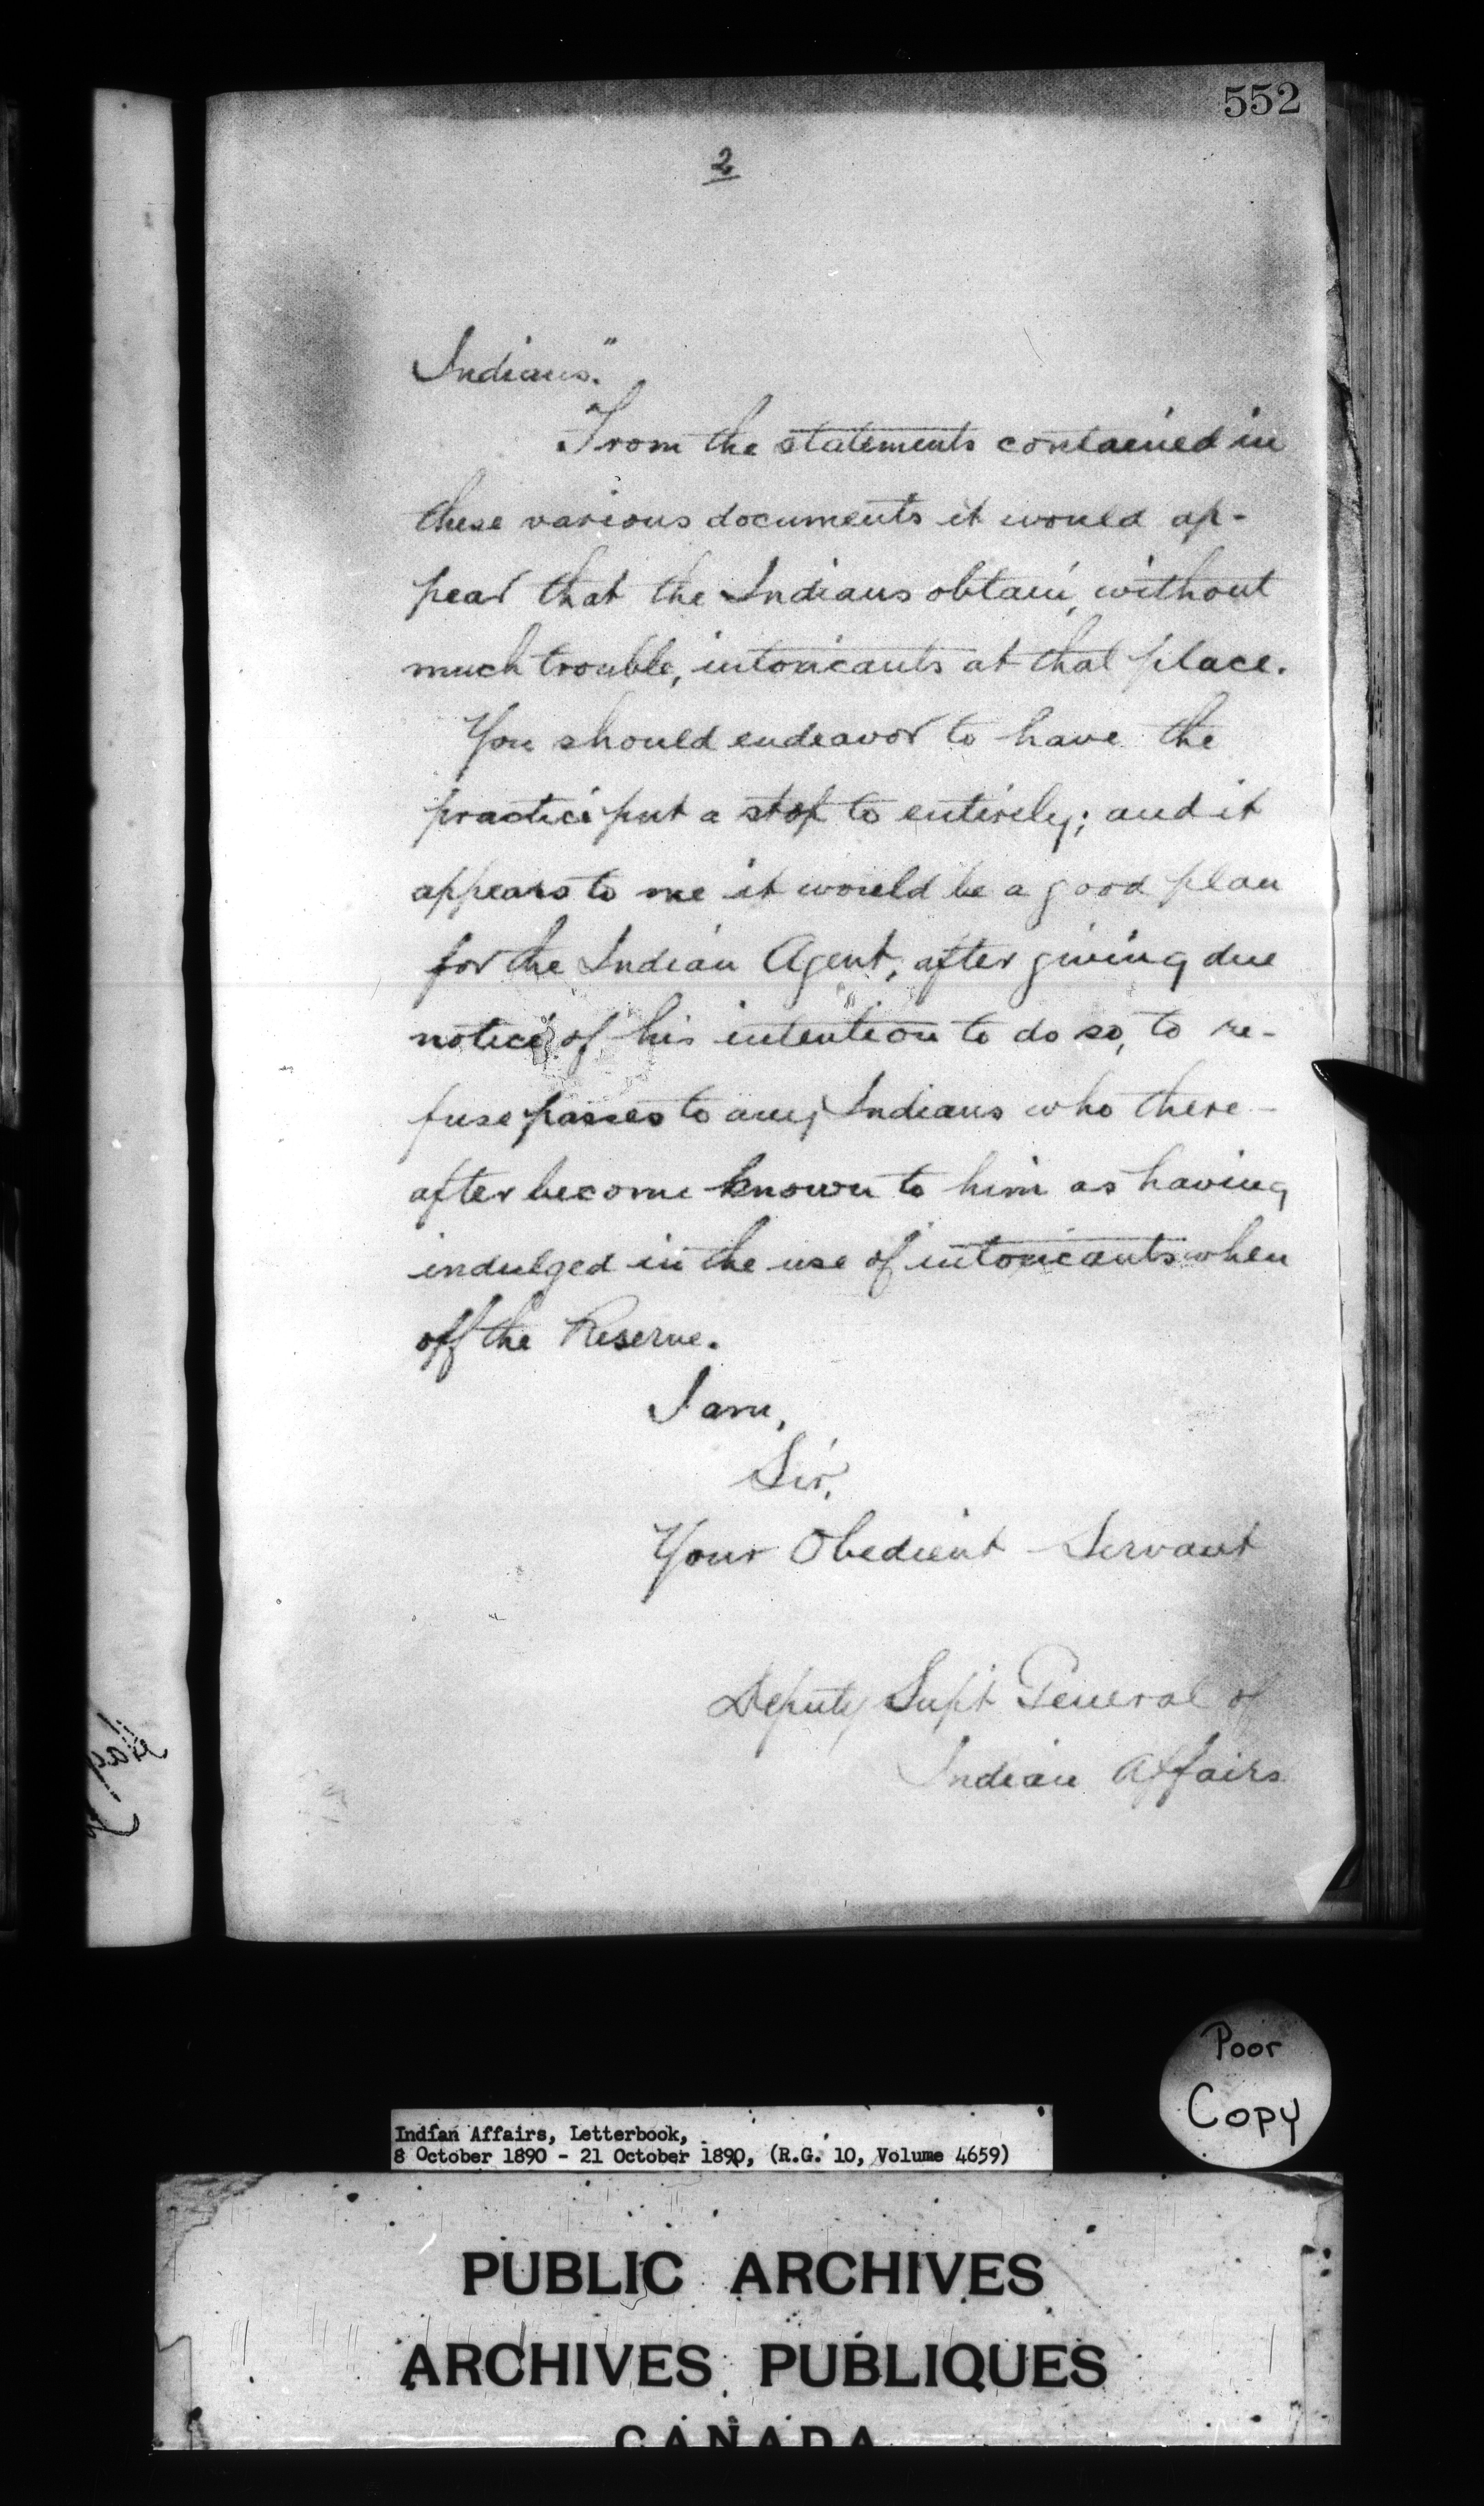 552
2
Indians."
From the statements contained in
these various documents it would ap-
pear that the Indians obtain, without
much trouble, intoxicants at that place.
You should endeavor to have the
practice put a stop to entirely; and it
appears to me it would be a good plan
for the Indian Agent, after giving due
notice of his intention to do so, to re-
fuse passes to any Indians who there-
after become known to him as having
indulged in the use of intoxicants when
off the Reserve.
I am,
Sir,
Your Obedient Servant
Deputy Supt General of
Indian Affairs
Poor
Copy
Indian Affairs, Letterbook,
8 October 1890 - 21 October 1890, (R.G. 10, Volume 4659)
PUBLIC ARCHIVES
ARCHIVES PUBLIQUES
CANADA